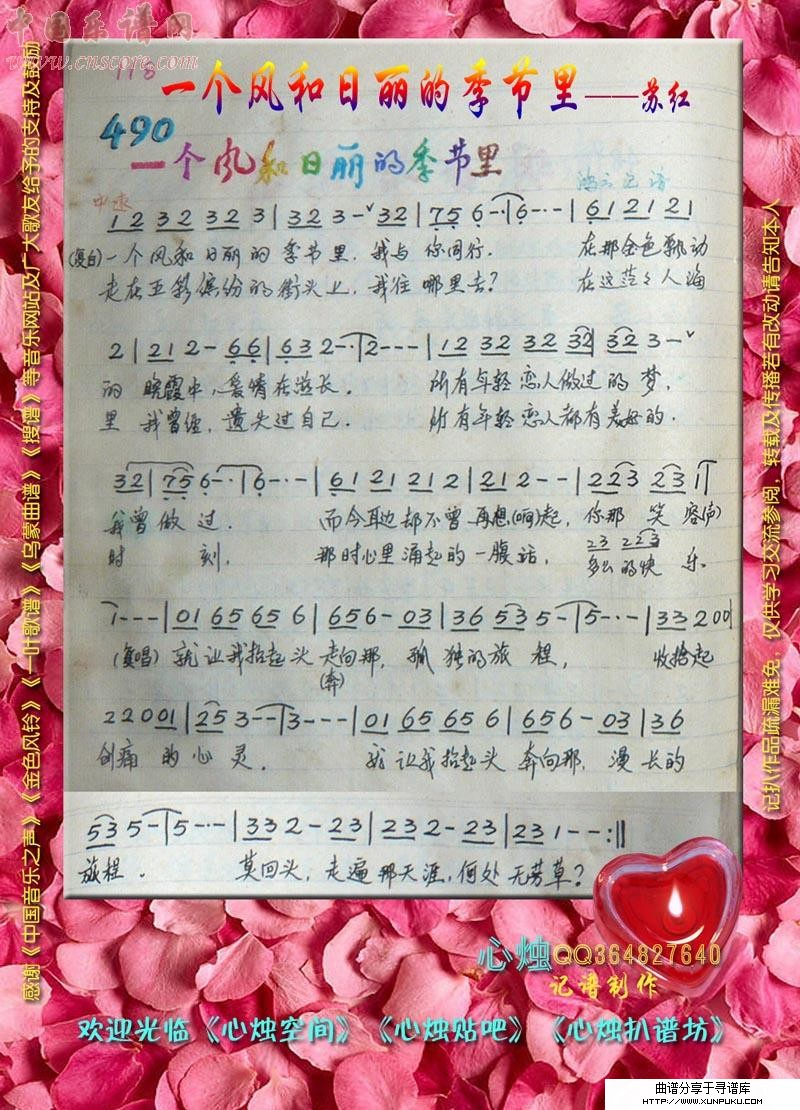 中国乐谱网
www.cnscore.com
118
一个风和日丽的季节里——苏红
490
一个风和日丽的季节里
中速
1 2 3 2 3 2 3 | 3 2 3 - ˅ 3 2 | 7 5 6 - · | 6 - · - | 6 1 2 1 2 1
(复白) 一个风和日丽的季节里，我与你同行. 在那金色飘动
走在五彩缤纷的街头上，我往哪里去？ 在这茫々人海
2 | 2 1 2 - 6 6 | 6 3 2 - · | 2 - - - | 1 2 3 2 3 2 3 2 | 3 2 3 - ˅
的晚霞中，爱情在滋长. 所有年轻恋人做过的梦，
里我曾经，遗失过自己. 所有年轻恋人都有美好的.
3 2 | 7 5 6 - · - | 6 - · - | 6 1 2 1 2 1 2 | 2 1 2 - - | 2 2 3 2 3 1 |
我曾做过. 而今耳边都不曾再想(响)起，你那笑容(声)
2 3 2 2 3
时刻， 那时心里涌起的一腹话， 多么的快乐
1 - - - | 0 1 6 5 6 5 6 | 6 5 6 - 0 3 | 3 6 5 3 5 - | 5 - · - | 3 3 2 0 0 1
(复唱) 就让我抬起头走向那，孤独的旅程， 收拾起
(奔)
2 2 0 0 1 | 2 5 3 - - | 3 - - - | 0 1 6 5 6 5 6 | 6 5 6 - 0 3 | 3 6
创痛的心灵. 就让我抬起头奔向那，漫长的
5 3 5 - | 5 - · - | 3 3 2 - 2 3 | 2 3 2 - 2 3 | 2 3 1 - - :||
旅程. 莫回头，走遍那天涯，何处无芳草？
感谢《中国音乐之声》《金色风铃》《一叶歌谱》《乌蒙曲谱》《搜谱》等音乐网站及广大歌友给予的支持及鼓励
记扒作品疏漏难免，仅供学习交流参阅，转载及传播若有改动请告知本人
心烛QQ364827640
记谱制作
欢迎光临《心烛空间》《心烛贴吧》《心烛扒谱坊》
曲谱分享于寻谱库
HTTP://WWW.XUNPUKU.COM